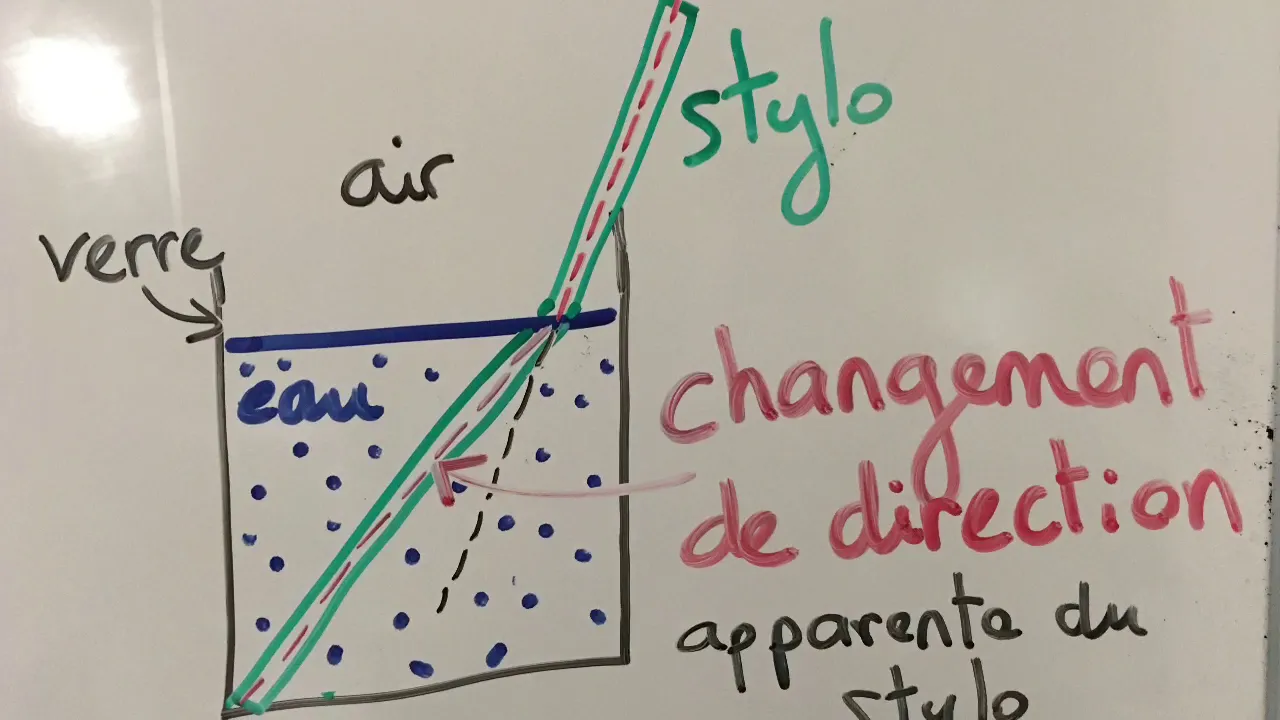 stylo
air
verre
eau
changement
de direction
apparente du
stylo